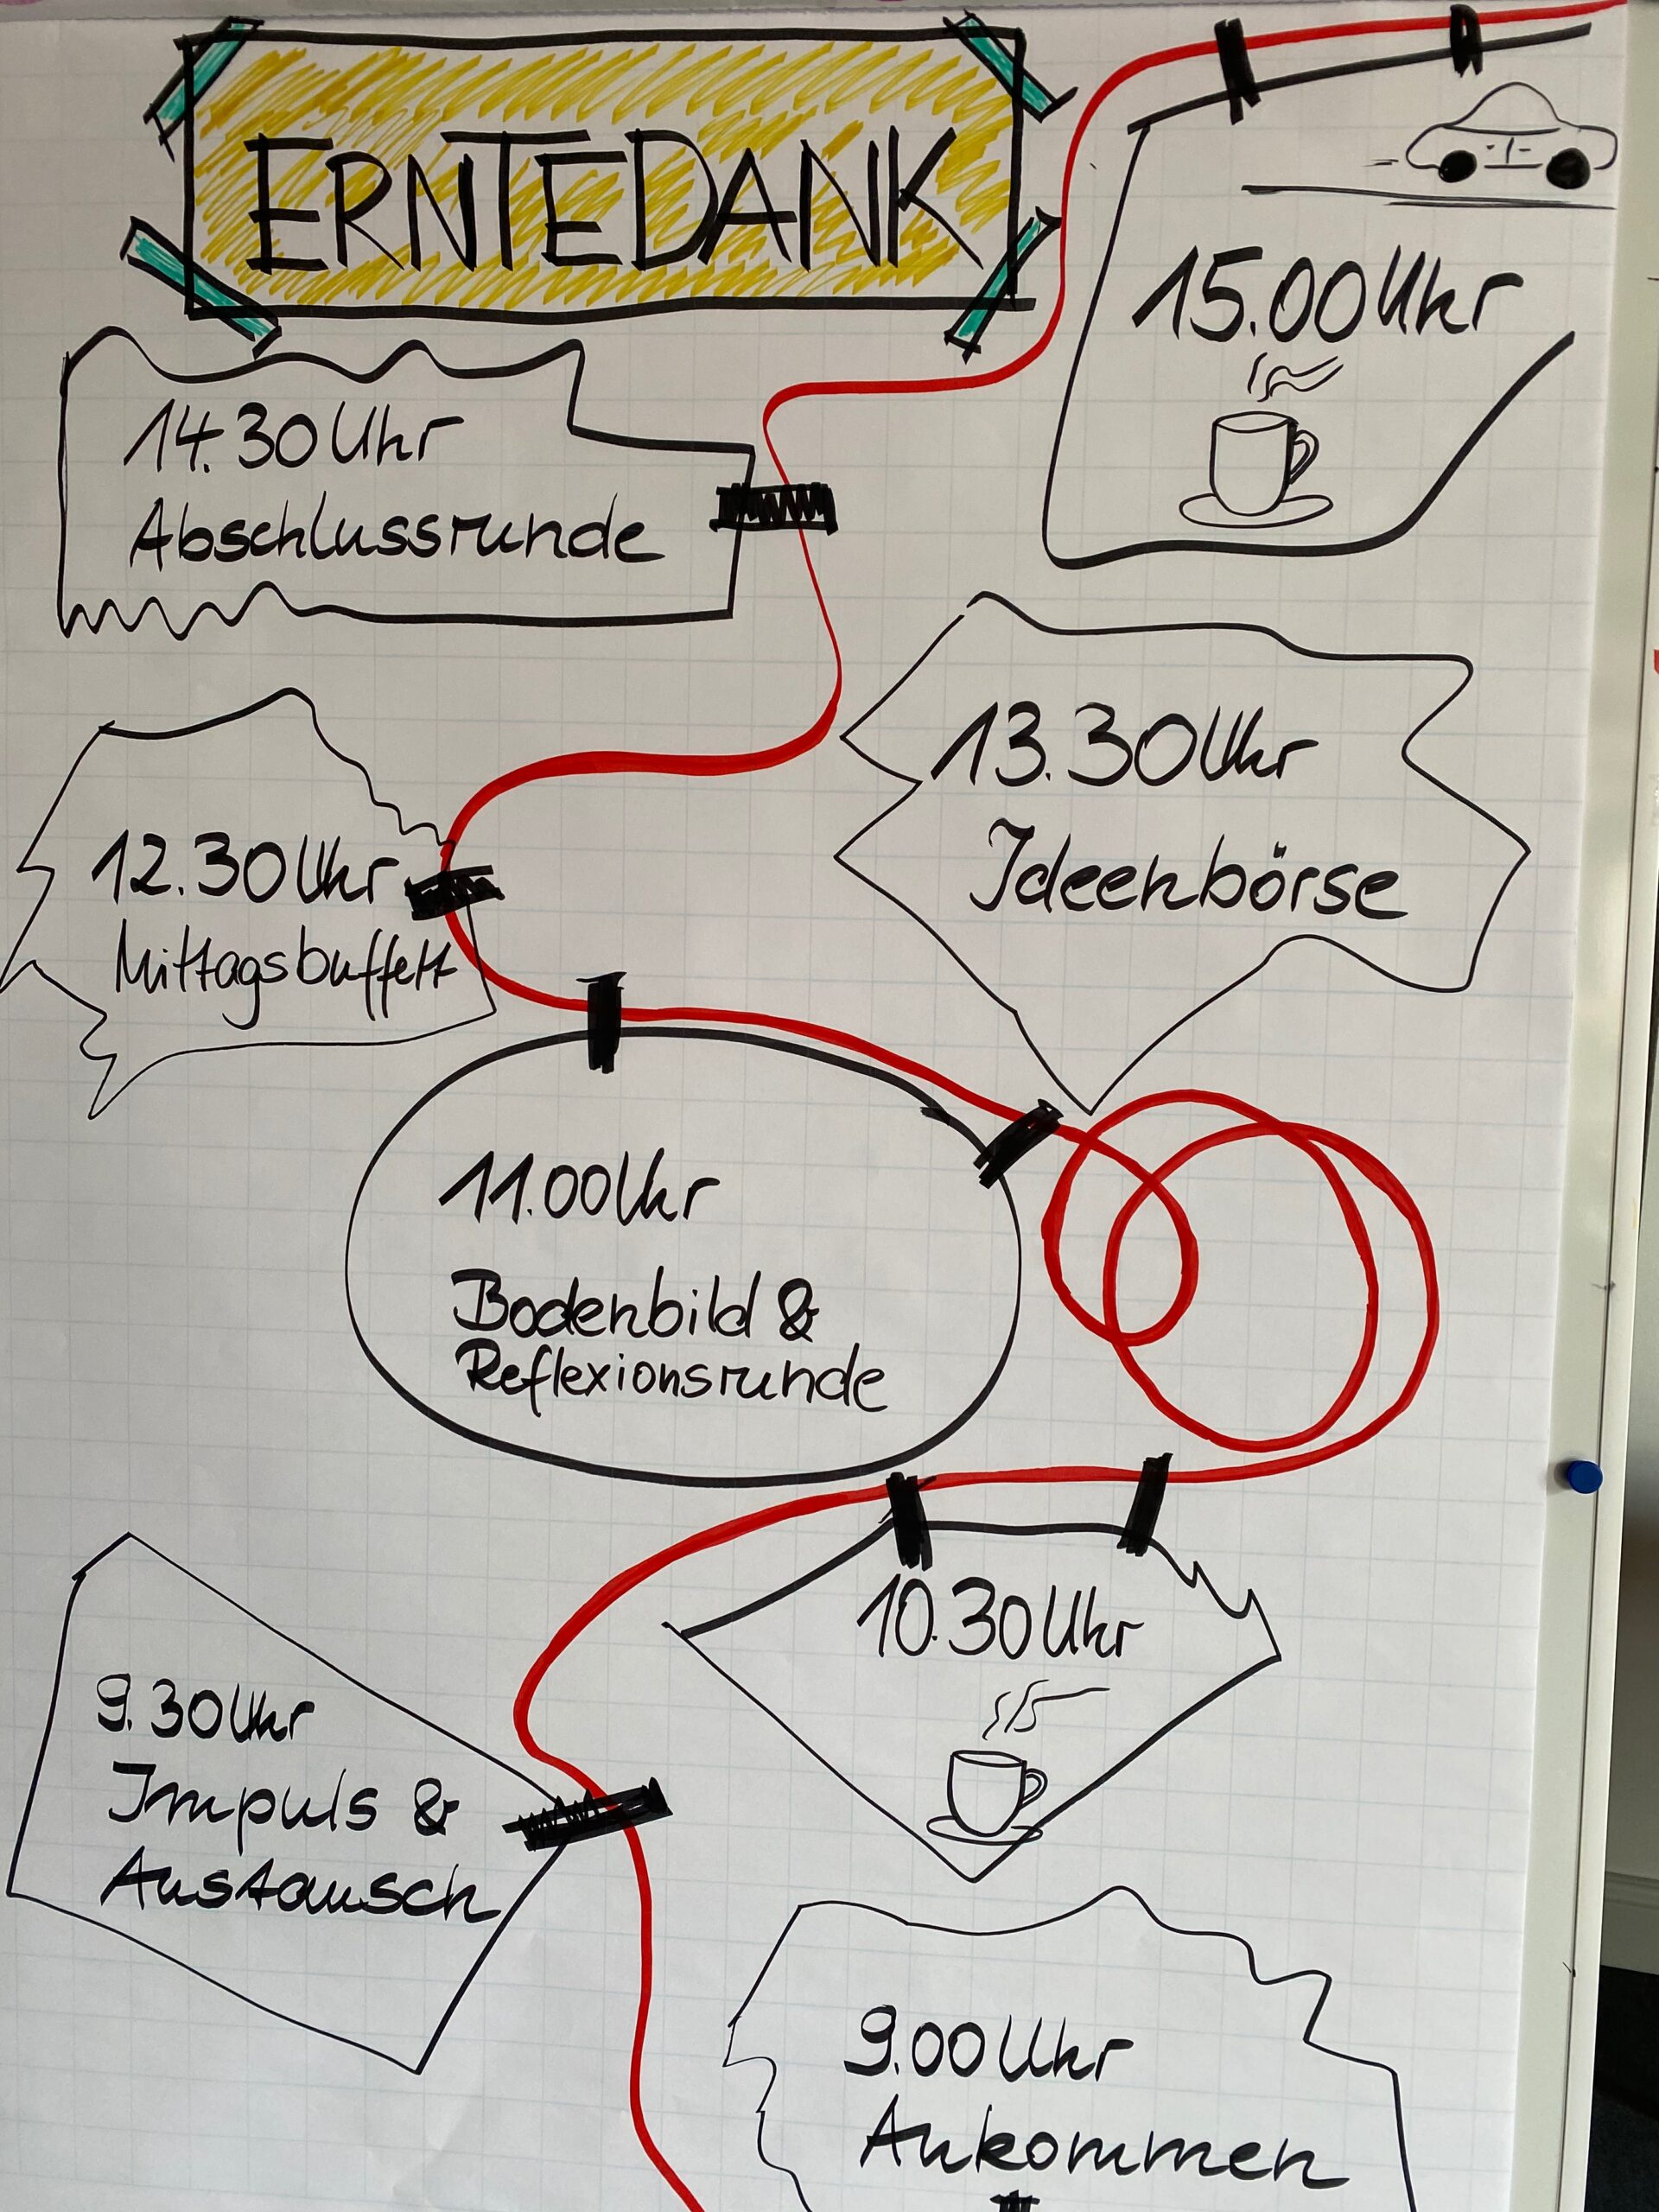 ERNTEDANK
15.00 Uhr
14.30 Uhr
Abschlussrunde
13.30 Uhr
Ideenbörse
12.30 Uhr
Mittagsbuffett
11.00 Uhr
Bodenbild &
Reflexionsrunde
10.30 Uhr
9.30 Uhr
Impuls &
Austausch
9.00 Uhr
Ankommen